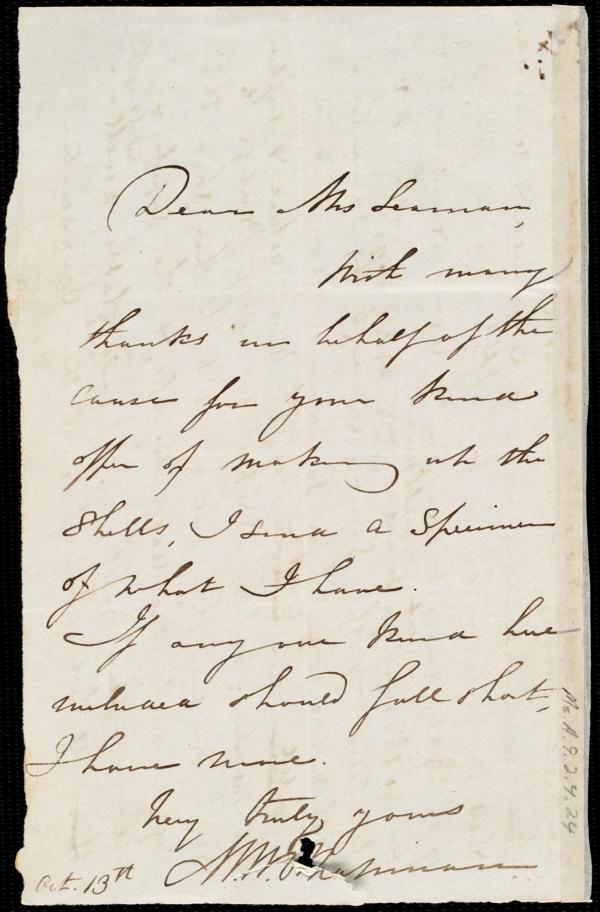 Dear Mrs Seaman,
With many
thanks in behalf of the
cause for your kind
offer of making up the
Shells, I send a Specimen
of what I have.
If any one kind here
included should fall short,
I have more.
Very truly yours
M. W. Chapman
Oct. 13th
Ms. A. 9. 2. 4. 24